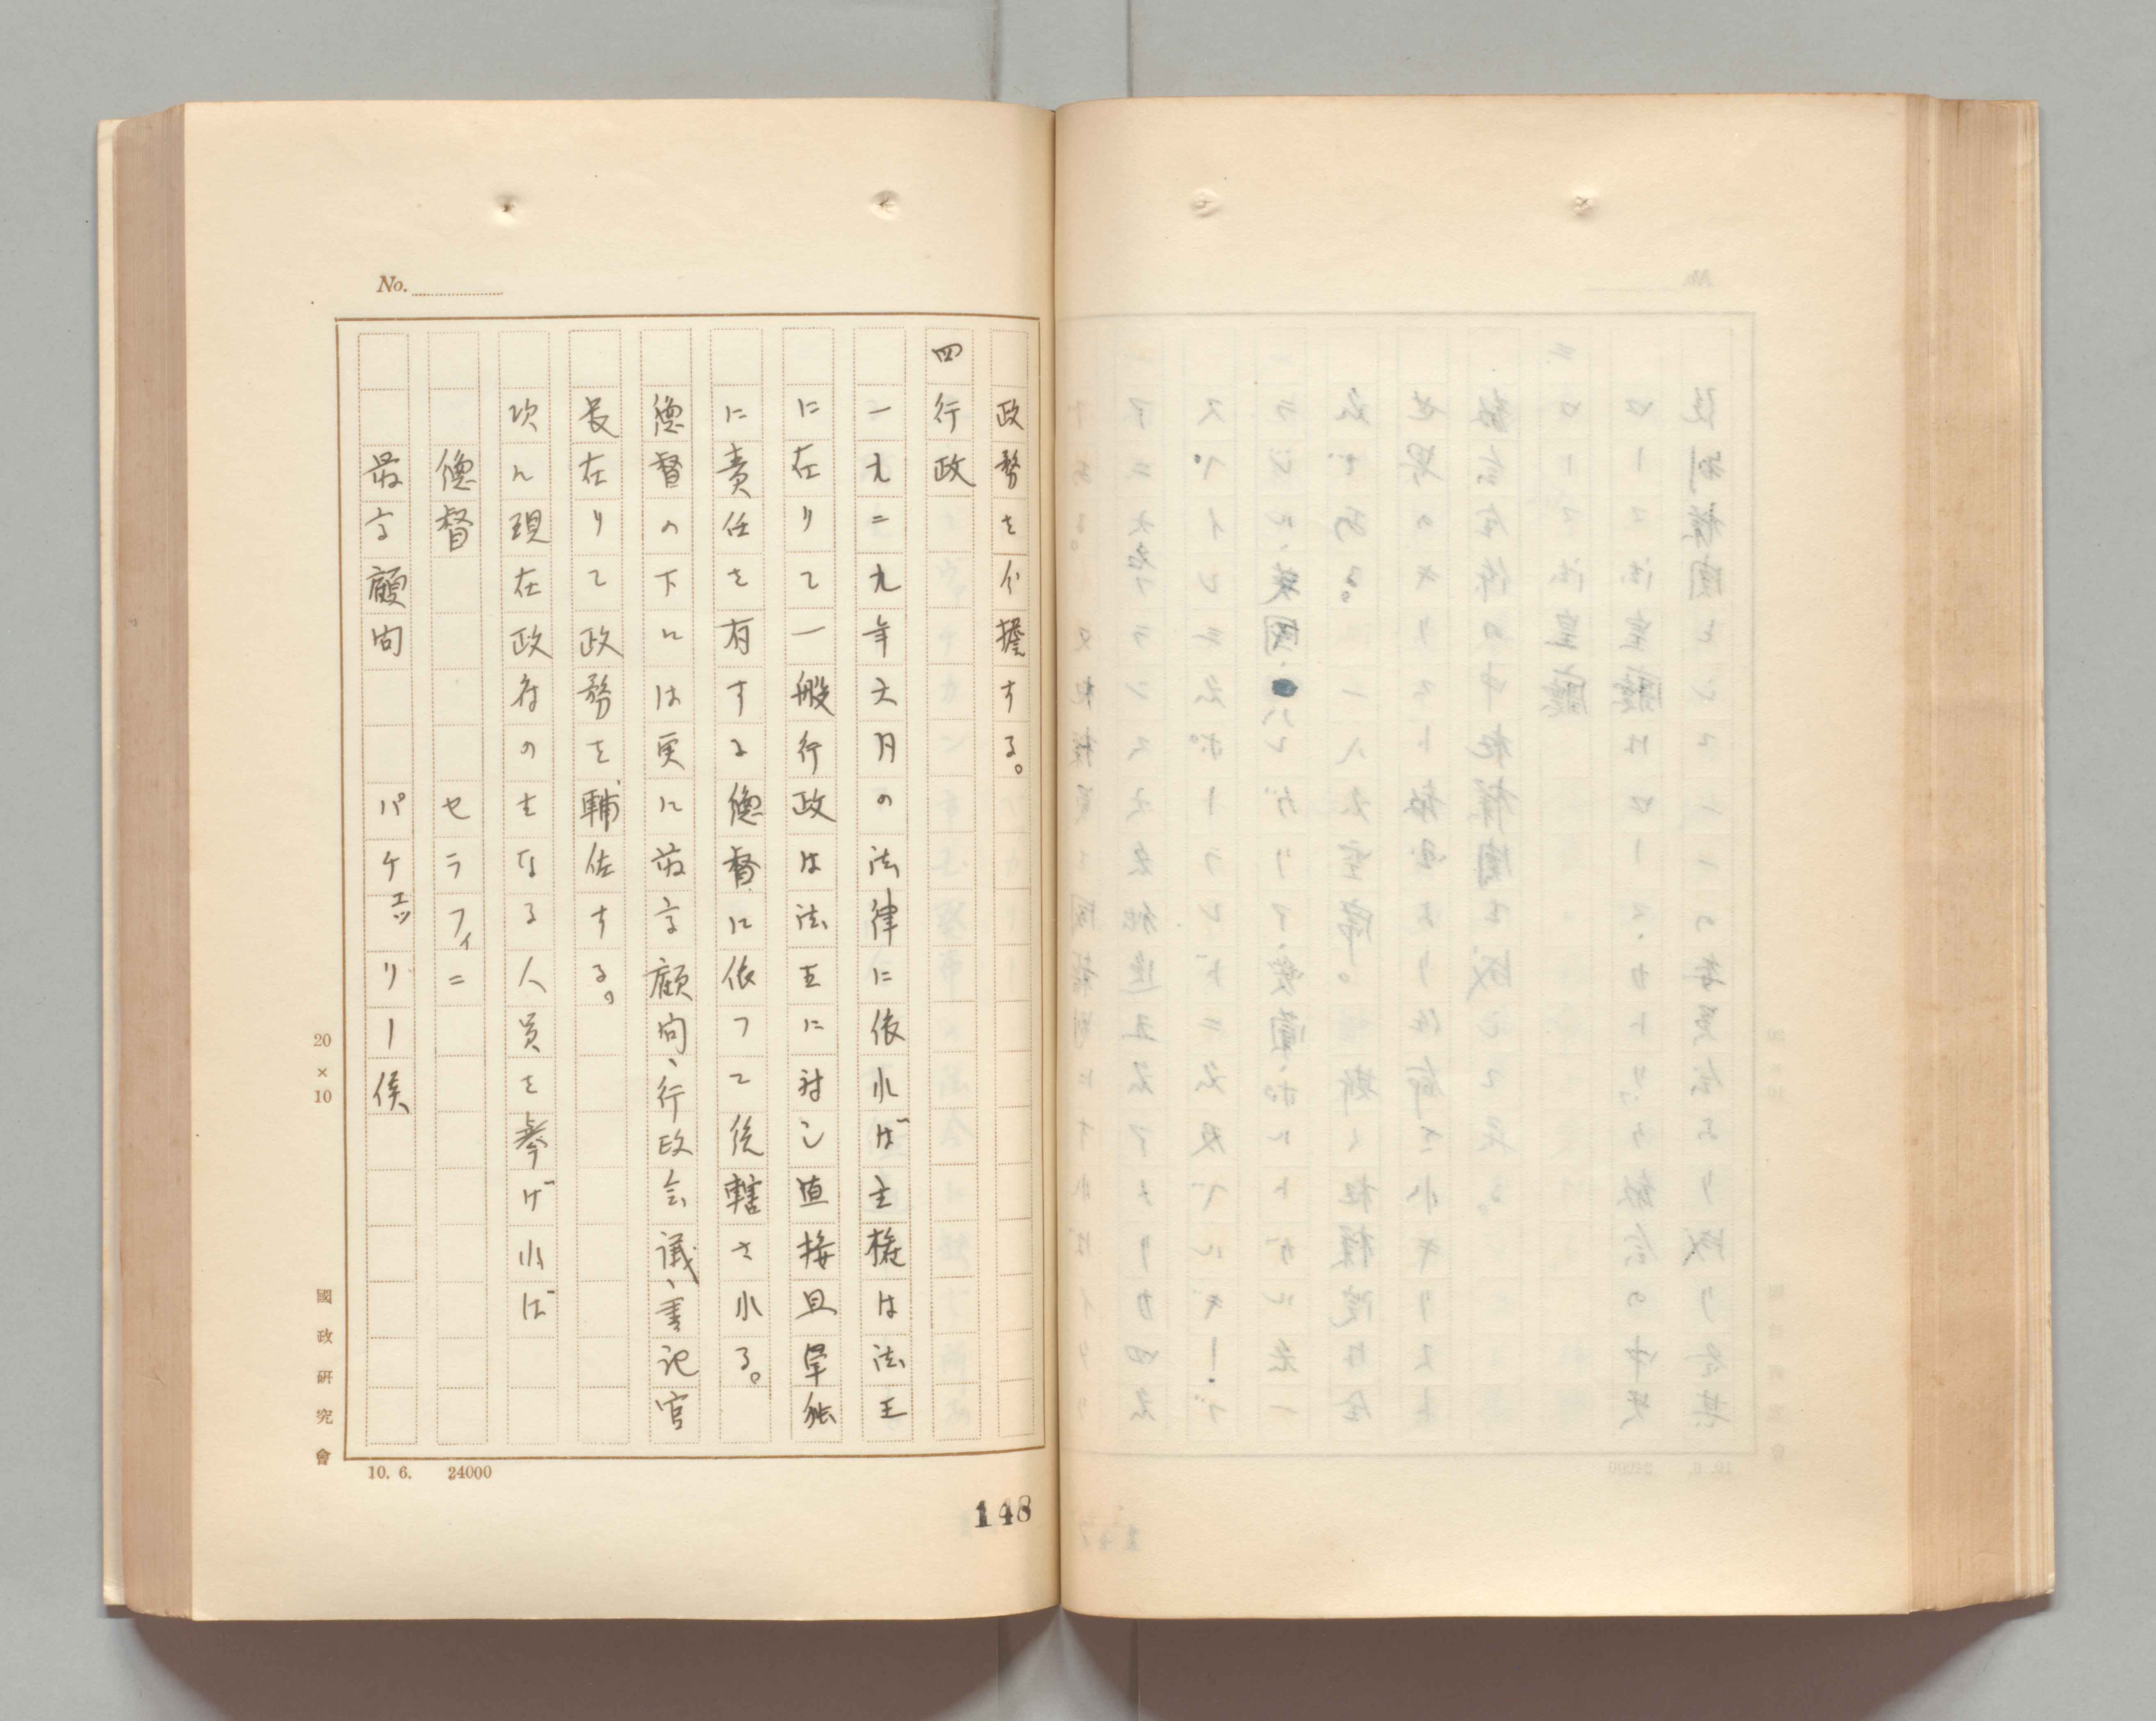 No.
政務を分擔する。
四行政
一九二九年六月の法律に依れば主権は法王
に在りて一般行政は法王に対し直接且單独
に責任を有する總督に依つて統轄される。
總督の下には更に最高顧問、行政会議、書記官
長在りて政務を輔佐する。
次に現在政府の主なる人員を挙げれば
總督 セラフィニ
最高顧問 パケエッリー侯
20×10
國政研究會
10. 6. 24000
148